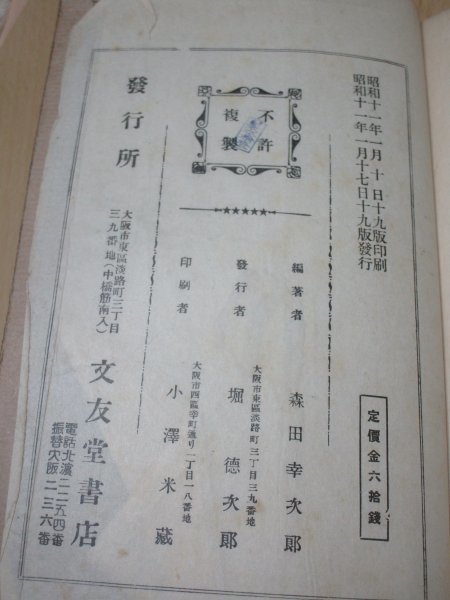 昭和十一年一月十日十九版印刷
昭和十一年一月十七日十九版發行
定價金六拾錢
不許
複製
編著者　森田幸次郎
大阪市東區淡路町三丁目三九番地
發行者　堀德次郎
大阪市西區幸町通り一丁目一八番地
印刷者　小澤米藏
發行所
大阪市東區淡路町三丁目
三九番地(中橋筋南入)
文友堂書店
電話北濱二二五四番
振替大阪二三六番